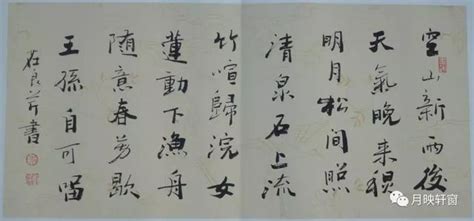 空山新雨後
天氣晚来秋
明月松間照
清泉石上流
竹喧歸浣女
蓮動下漁舟
随意春芳歇
王孫自可留
良芹書
月映轩窗